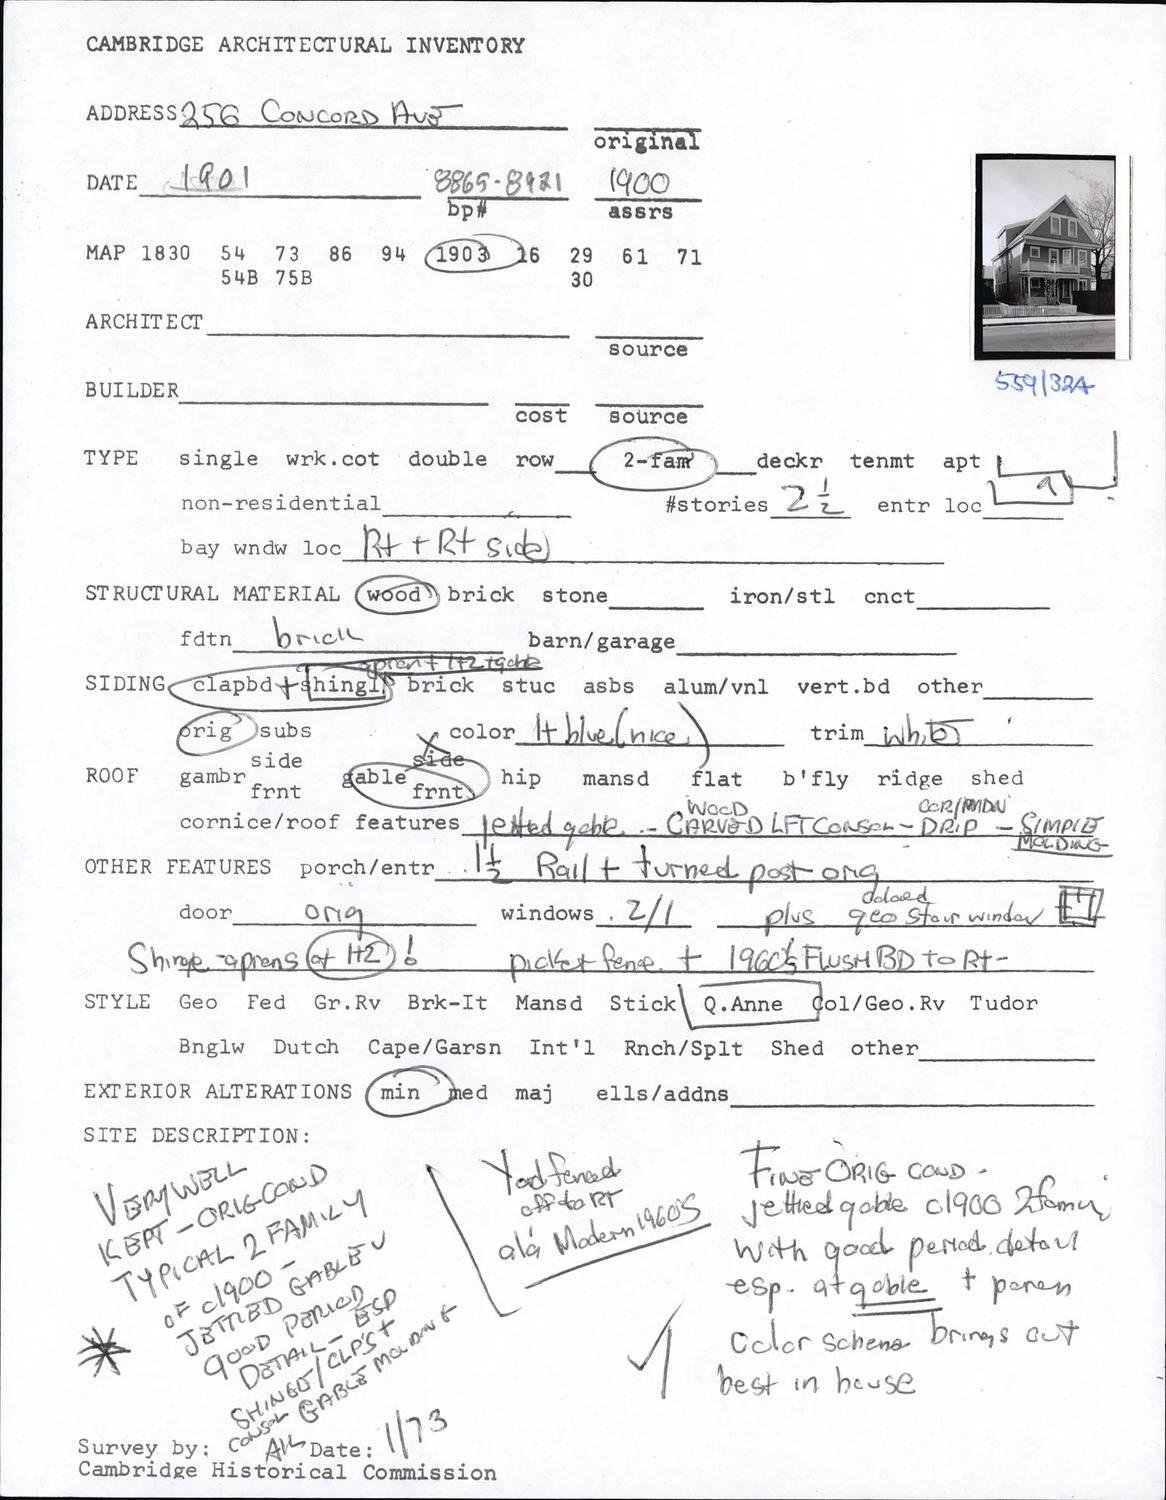 CAMBRIDGE ARCHITECTURAL INVENTORY
ADDRESS 256 CONCORD AVE
original
DATE 1901 8865-8921 1900
bp# assrs
MAP 1830 54 73 86 94 1903 16 29 61 71
54B 75B 30
ARCHITECT
source
559/32A
BUILDER
cost source
TYPE single wrk.cot double row 2-fam deckr tenmt apt
non-residential #stories 2 1/2 entr loc
bay wndw loc Rt + Rt side
STRUCTURAL MATERIAL wood brick stone iron/stl cnct
fdtn brick barn/garage
apron + 1+2 + gable
SIDING clapbd + shingl brick stuc asbs alum/vnl vert.bd other
orig subs color lt blue (nice) trim white
side side
ROOF gambr gable hip mansd flat b'fly ridge shed
frnt frnt
WOOD COR/WNDW
cornice/roof features jetted gable - CARVED LFT CONSOL - DRIP - SIMPLE
MOLDING
OTHER FEATURES porch/entr 1 1/2 Rail + turned post orig
colored
door orig windows 2/1 plus geo stair window
Shingle aprons at 1+2 ! picket fence + 1960's FLUSH BD TO Rt -
STYLE Geo Fed Gr.Rv Brk-It Mansd Stick Q.Anne Col/Geo.Rv Tudor
Bnglw Dutch Cape/Garsn Int'l Rnch/Splt Shed other
EXTERIOR ALTERATIONS min med maj ells/addns
SITE DESCRIPTION:
VERY WELL
KEPT - ORIG COND
TYPICAL 2 FAMILY
OF c1900 -
JETTED GABLE
GOOD PERIOD
DETAIL - ESP
SHINGLE/CLP'S +
CONSOL GABLE MOLDING
Yard fenced
off to RT
ala Modern 1960'S
FINE ORIG COND -
jetted gable c1900 2 family
with good period detail
esp. at gable + porch
Color scheme brings out
best in house
Survey by: Date: 1/73
Cambridge Historical Commission